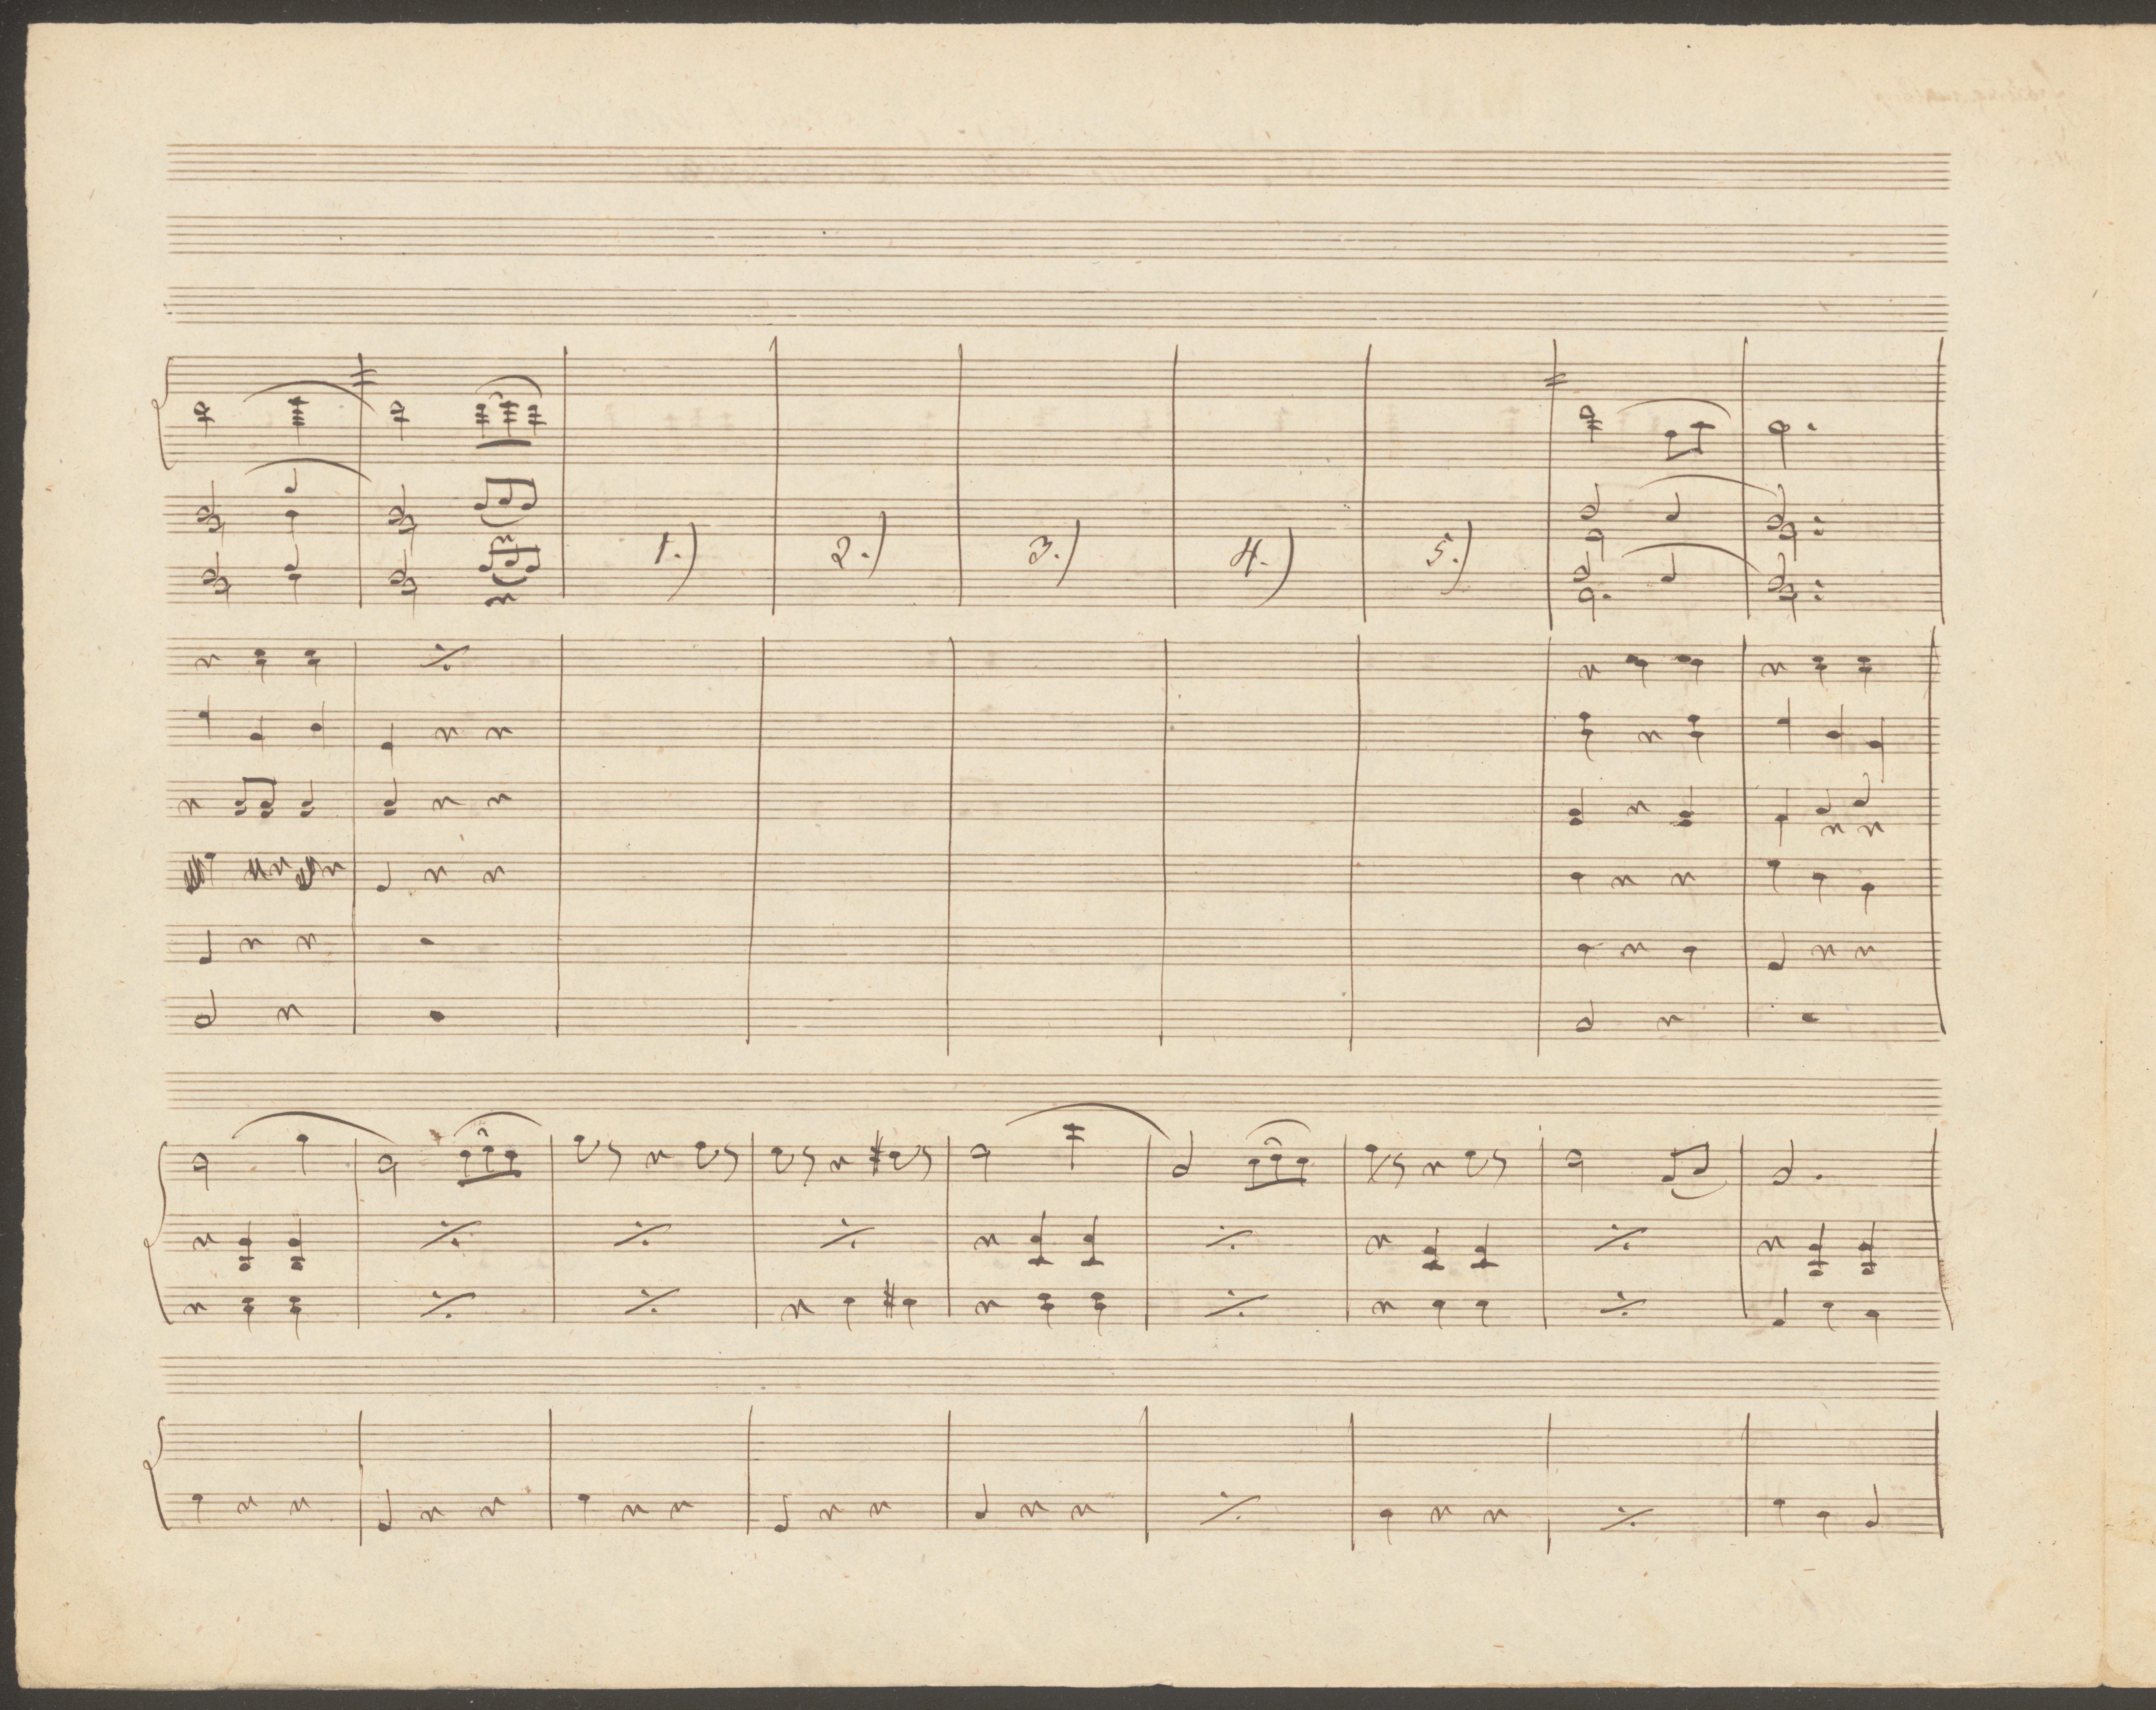 1.) 2.) 3.) 4.) 5.)